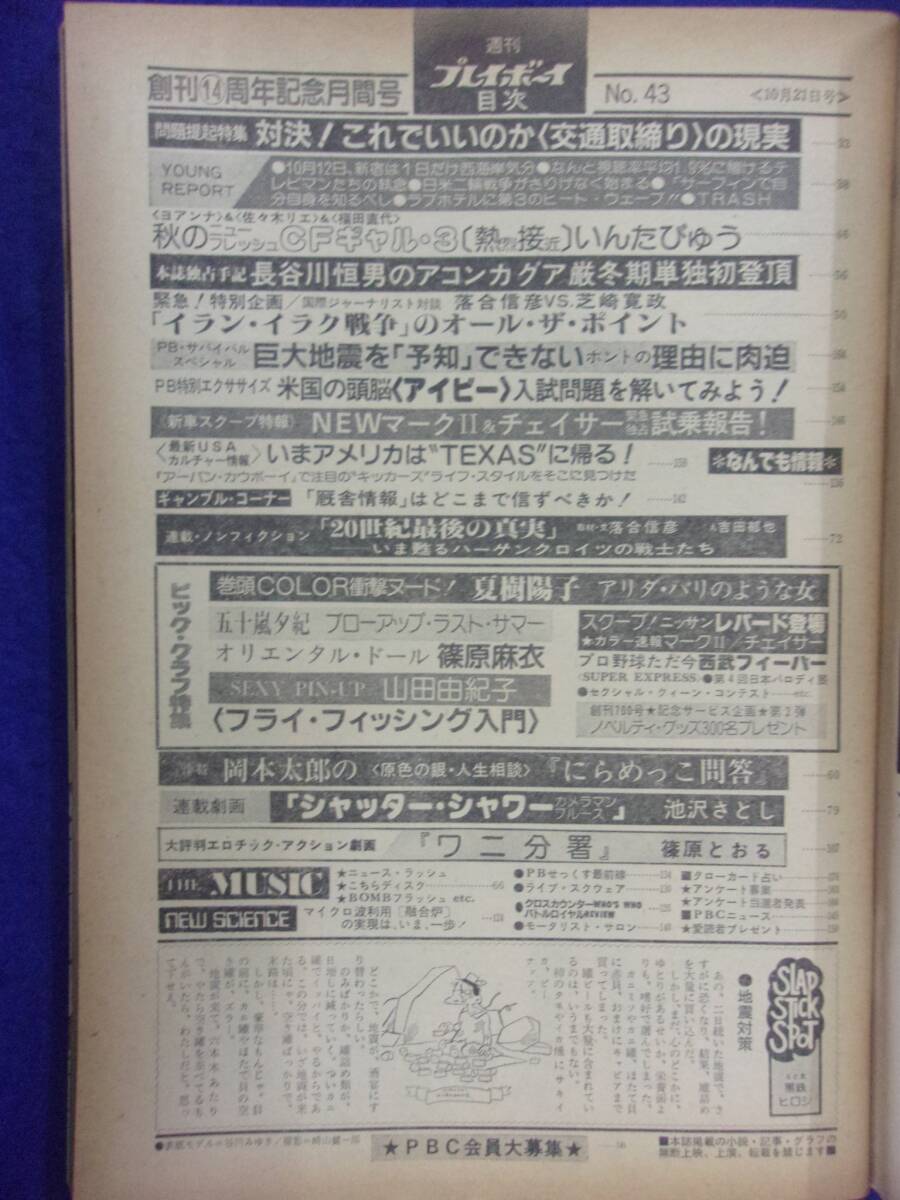 週刊
プレイボーイ
目次
創刊⑭周年記念月間号
No. 43
<10月21日号>
問題提起特集 対決!これでいいのか〈交通取締り〉の現実
YOUNG REPORT
●10月12日、新宿は1日だけ西海岸気分●なんと視聴率平均1.9%に賭けるテ
レビマンたちの執念●日米二輪戦争がさりげなく始まる●『サーフィンで自
分自身を知るべし●ラブホテルに第3のヒート・ウェーブ!!●TRASH
〈ヨアンナ〉&〈佐々木リエ〉&〈福田直代〉
秋のニューフレッシュCFギャル・3〔熱烈接近〕いんたびゅう
本誌独占手記 長谷川恒男のアコンカグア厳冬期単独初登頂 56
緊急!特別企画/国際ジャーナリスト対談 落合信彦VS.芝崎寛政
「イラン・イラク戦争」のオール・ザ・ポイント 50
PB・サバイバルスペシャル 巨大地震を「予知」できないホントの理由に肉迫
PB特別エクササイズ 米国の頭脳〈アイビー〉入試問題を解いてみよう!
〈新車スクープ特報〉 NEWマークⅡ&チェイサー緊急独占試乗報告!
〈最新USAカルチャー情報〉いまアメリカは“TEXAS”に帰る! 159
『アーバン・カウボーイ』で注目の“キッカーズ”ライフ・スタイルをそこに見つけた
*なんでも情報* 136
ギャンブル・コーナー 「厩舎情報」はどこまで信ずべきか! 142
連載・ノンフィクション 「20世紀最後の真実」 取材・文 落合信彦 吉田郁也 72
——いま甦るハーゲンクロイツの戦士たち
ビッグ・グラフ特集
巻頭COLOR衝撃ヌード! 夏樹陽子 アリダ・バリのような女
五十嵐夕紀 ブローアップ・ラスト・サマー
オリエンタル・ドール 篠原麻衣
SEXY PIN-UP 山田由紀子
〈フライ・フィッシング入門〉
スクープ!ニッサンレパード登場
★カラー速報マークⅡ/チェイサー
プロ野球ただ今西武フィーバー
〈SUPER EXPRESS〉●第4回日本パロディ展
●セクシャル・クィーン・コンテスト……etc.
創刊700号★記念サービス企画★第2弾
ノベルティ・グッズ300名プレゼント
岡本太郎の〈原色の銀・人生相談〉『にらめっこ問答』 60
連載劇画 「シャッター・シャワーカメラマンブルース」 池沢さとし 79
大評判エロチック・アクション劇画 『ワニ分署』 篠原とおる 107
THE MUSIC
★ニュース・ラッシュ
★こちらディスク 66
★BOMBフラッシュ etc.
NEW SCIENCE マイクロ波利用〔融合炉〕
の実現は、いま、一歩!
●PBせっくす最前線 134
●ライブ・スクウェア
●クロスカウンターWHO'S WHO
バトルロイヤルREVIEW
●モータリスト・サロン
■クローカード占い
★アンケート募集
★アンケート当選者発表
■PBCニュース
★愛読者プレゼント
SLAP STICK SPOT
黒鉄ヒロシ
●地震対策
あの、二日続いた地震で、さ
すがに恐くなり、結果、罐詰め
を大量に買い込んだ。
しかし、まだ、心のどこかに、
ゆとりがあるせいか、栄養価よ
りも、嗜好で選んでしまった。
カニミソやカニ罐、ほたて貝
に赤貝、おまけにキャビアまで
買ってしまった。
罐ビールも大量に含まれてい
るのは、いうまでもない。
どこかで、地震が、酒宴にす
り替わったらしい。
のみばかりか、罐詰め類が、
日増しに減っていく。ついカニ
罐でイッパイと、やるからであ
る。この分では、いざ地震が来
た頃にゃ、空き罐ばっかりで、
末路は……。
しかし、豪華なもんじゃ。目
の前に、カニ罐やほたて貝の空
き罐が、ズラーッ。
地震が来て、六本木あたり
で、やたら空き罐を並べてるも
んがいたら、わたしだと、思っ
て下せえ。
●表紙モデル=谷川みゆき/撮影=崎山健一郎
★PBC会員大募集★
■本誌掲載の小説・記事・グラフの
無断上映、上演、転載を禁じます■